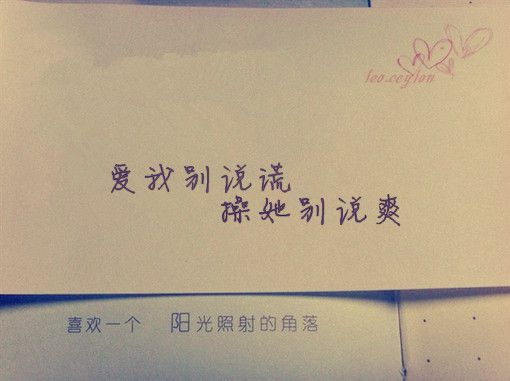 leo.ceylon
爱我别说谎
操她别说爽
喜欢一个 阳光照射的角落